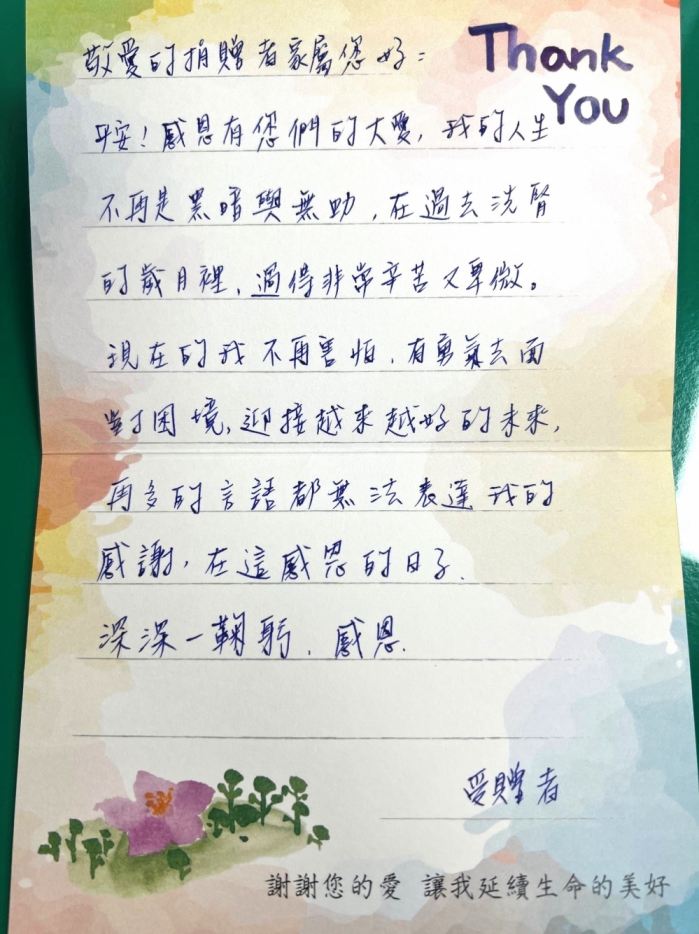 敬愛的捐贈者家屬您好：
Thank
You
平安！感恩有您們的大愛，我的人生
不再是黑暗與無助，在過去洗腎
的歲月裡，過得非常辛苦又卑微。
現在的我不再害怕，有勇氣去面
對困境，迎接越來越好的未來，
再多的言語都無法表達我的
感謝，在這感恩的日子，
深深一鞠躬，感恩。
受贈者
謝謝您的愛 讓我延續生命的美好